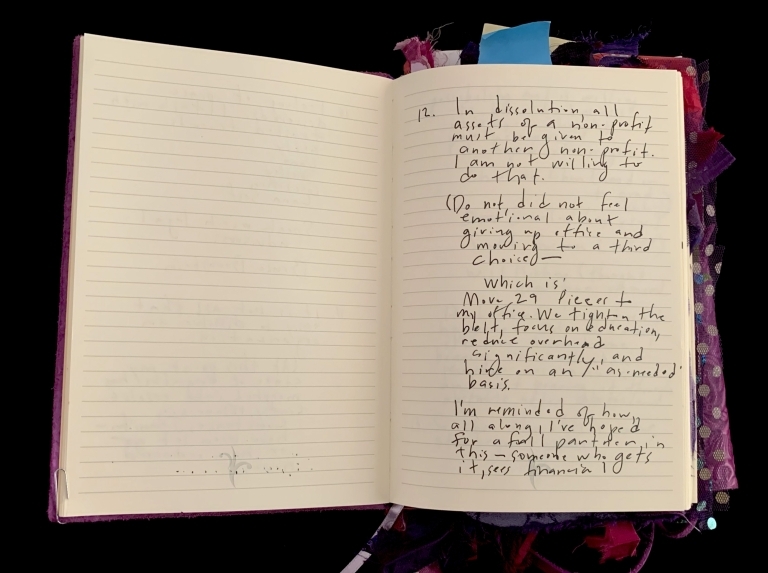 12. In dissolution, all
assets of a non-profit
must be given to
another non-profit.
I am not willing to
do that.
(Do not, did not feel
emotional about
giving up office and
moving to a third
choice) —
Which is:
Move 29 Pieces to
my office. We tighten the
belt, focus on education,
reduce overhead
significantly, and
hire on an "as-needed"
basis.
I'm reminded of how,
all along, I've hoped
for a full partner in
this — someone who gets
it, sees financial